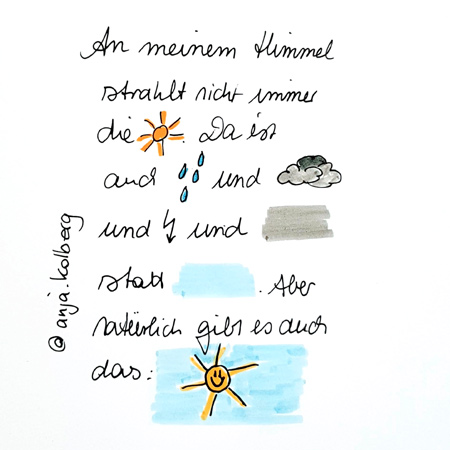 An meinem Himmel
strahlt nicht immer
die . Da ist
auch und
und und
statt . Aber
natürlich gibt es auch
das:
@anja.kolberg